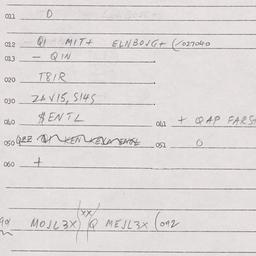 011 0
012 Q1 MIT+ ELNBOVG+ (/027040
013 - QIN
020 T81R
030 ZAV15, S14S
040 $ENTL 041 + QAP FARS
050 051 0
060 +
MOJL3X)(XX)(Q MEJL3X (092